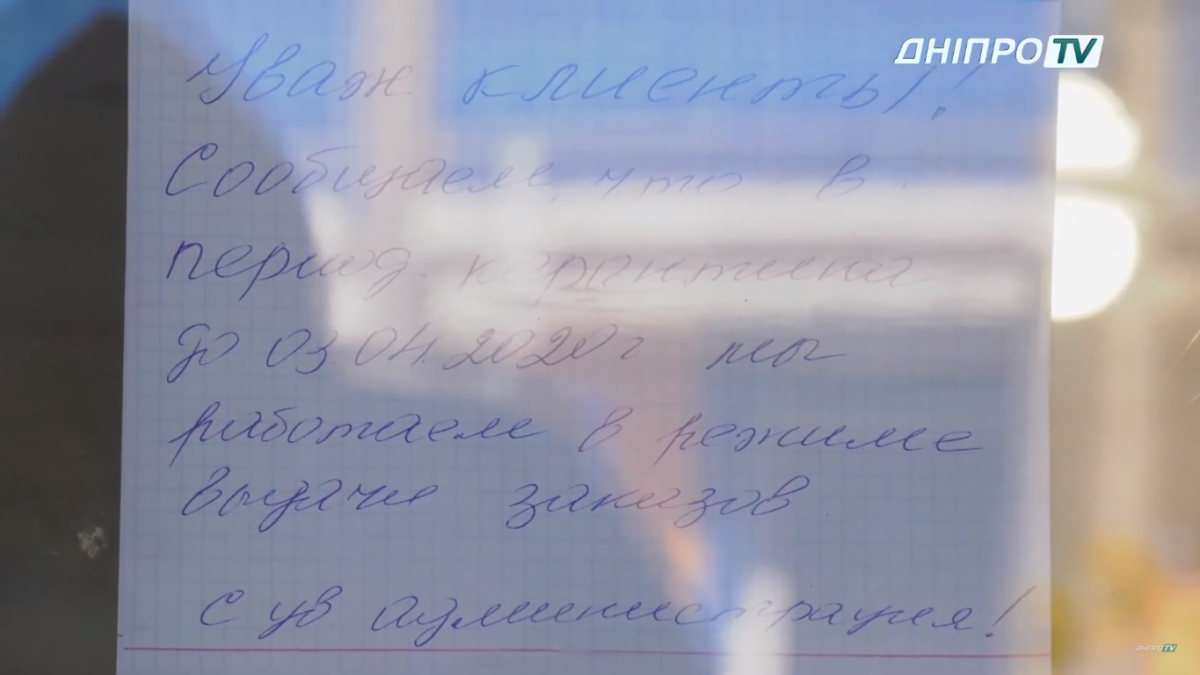 ДНІПРО TV
Уваж клиенты!
Сообщаем, что в
период карантина
до 03.04.2020г мы
работаем в режиме
выдачи заказов
С ув администрация!
ДНІПРО TV